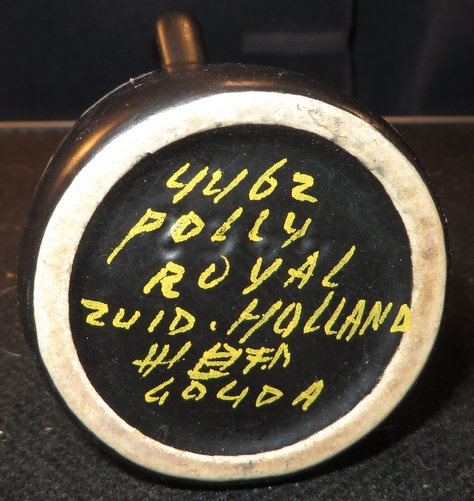 4462
POLLY
ROYAL
ZUID. HOLLAND
GOUDA